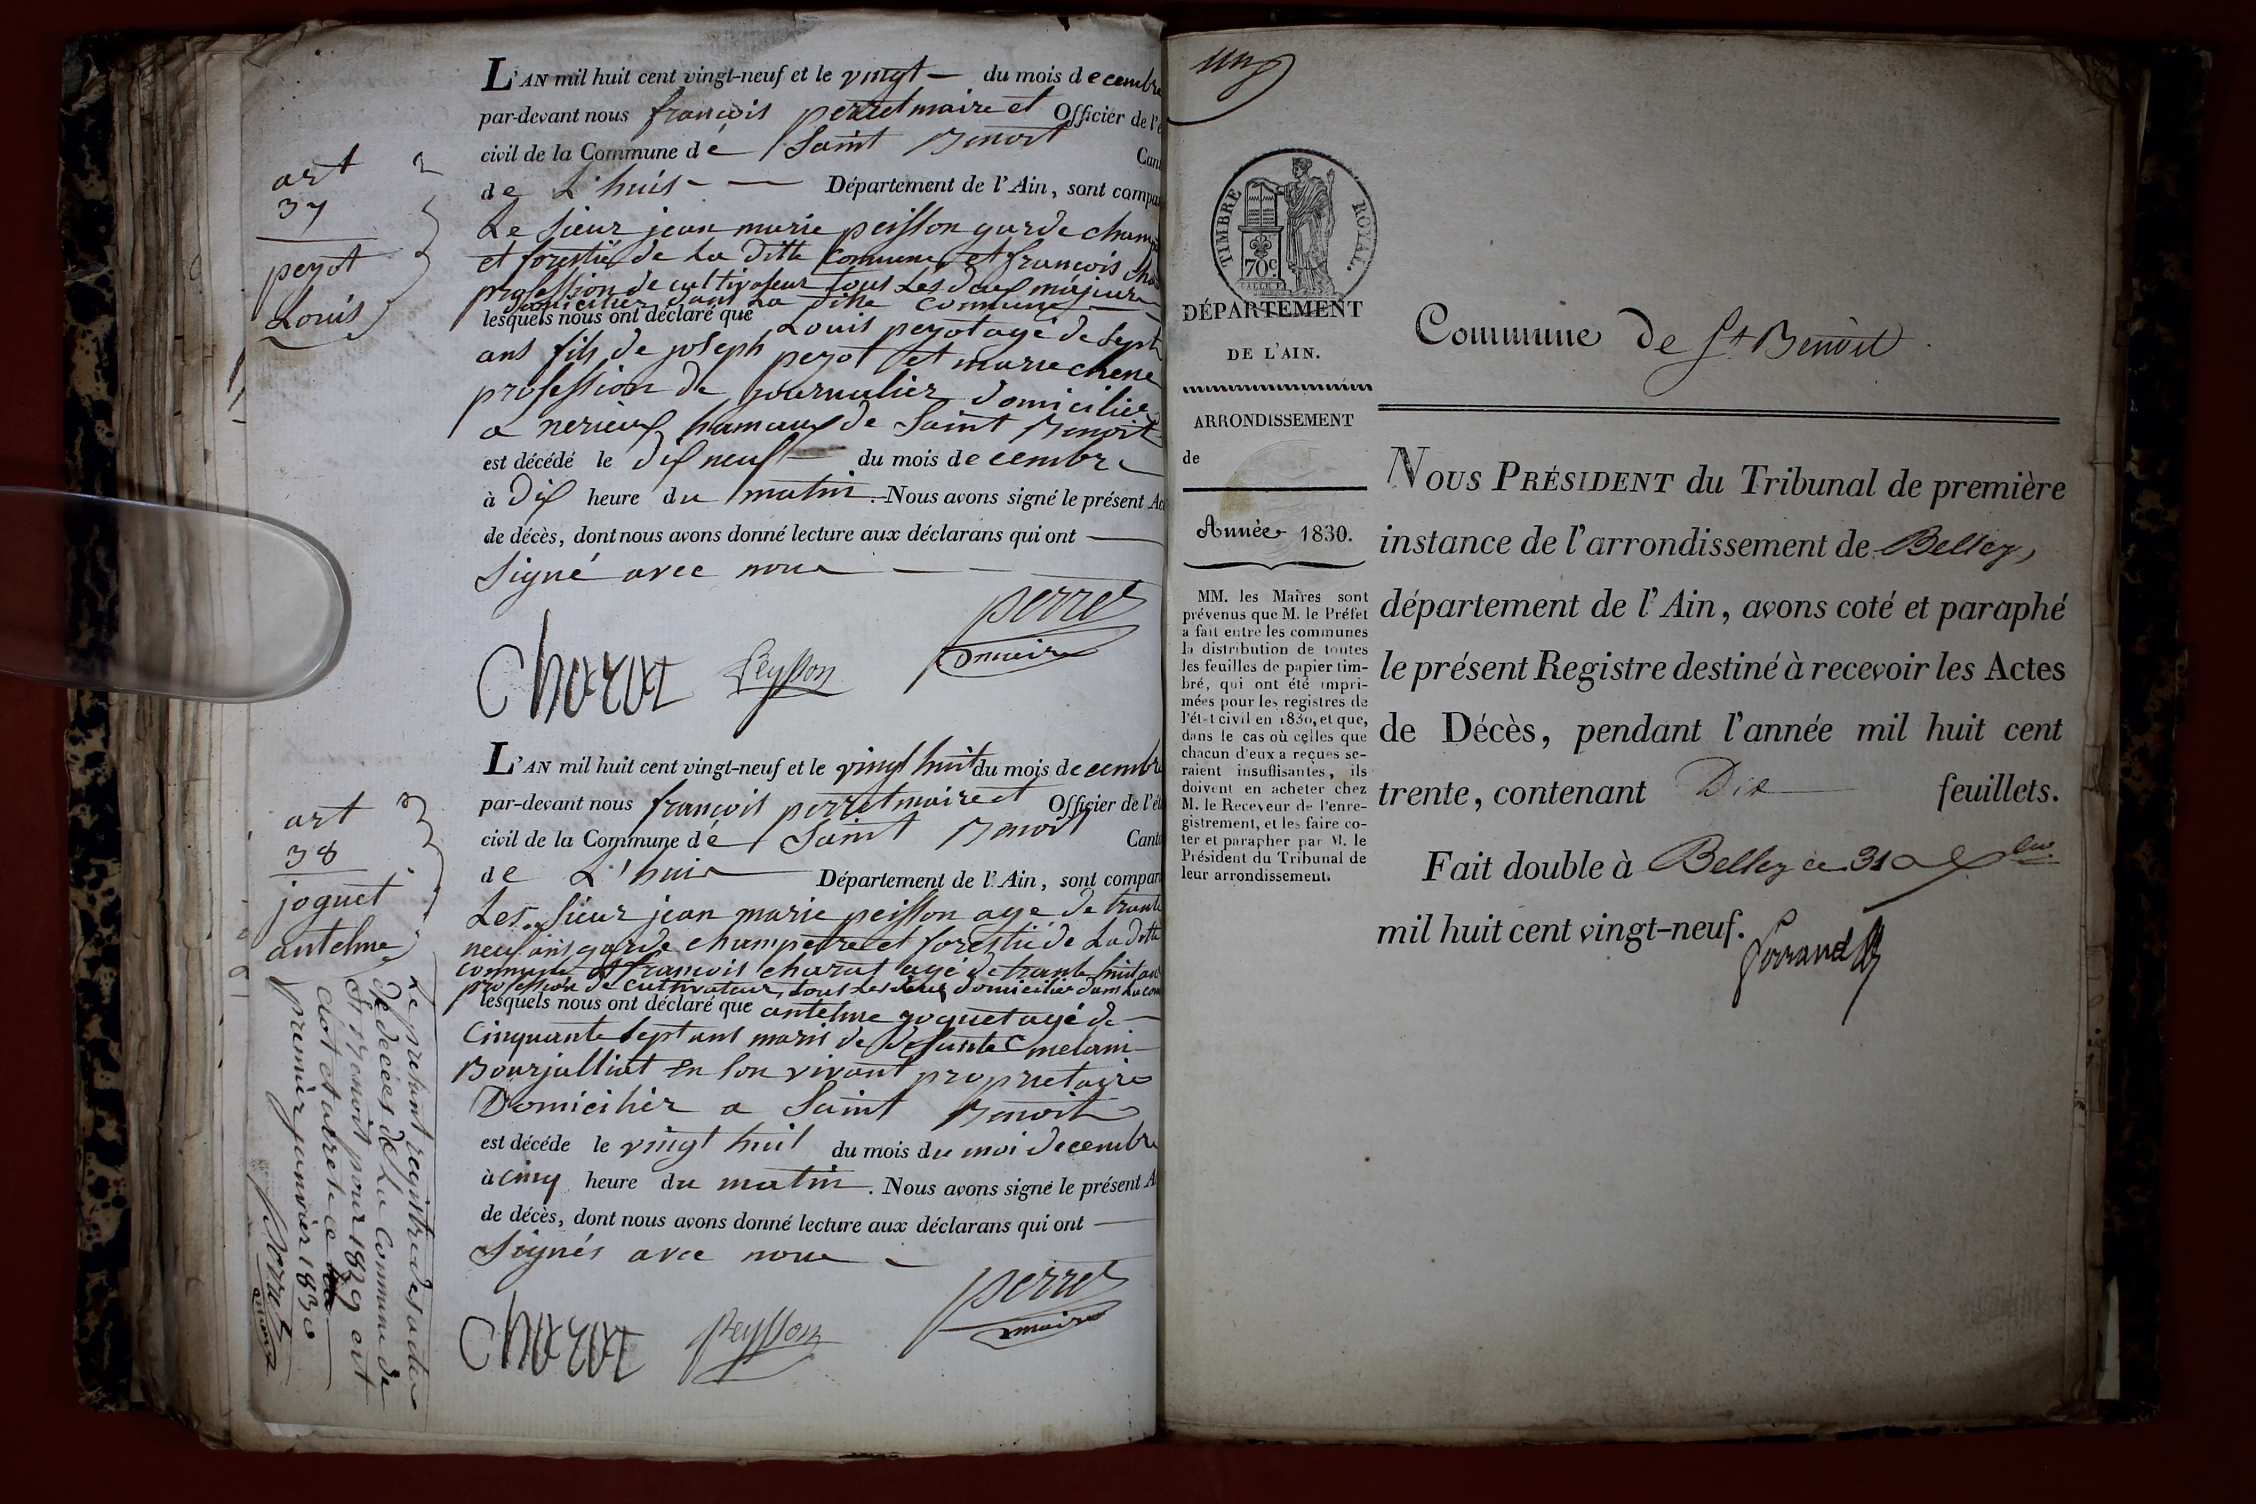 art
37
peyot
Louis
L'AN mil huit cent vingt-neuf et le vingt du mois decembre
par-devant nous françois perret maire et Officier de l'é
civil de la Commune de Saint Benoit Can
de L'huis Département de l'Ain, sont compa
Le sieur jean marie peisson garde champ
et forestié de La ditte Commune et françois cha
profession de cultivateur tous Les deux majeurs
domicilier dans La ditte Commune
lesquels nous ont déclaré que Louis peyot agé de sept
ans fils de joseph peyot et marie chene
profession de journalier domicilier
a nerieux hamaux de Saint Benoit
est décédé le dix neuf du mois decembre
à dix heure du matin. Nous avons signé le présent Ac
de décès, dont nous avons donné lecture aux déclarans qui ont
Signé avec nous
Charat Peysson perret
maire
art
38
joguet
antelme
L'AN mil huit cent vingt-neuf et le vingt huit du mois decembre
par-devant nous françois perret maire et Officier de l'ét
civil de la Commune de Saint Benoit Canto
de L'huis Département de l'Ain, sont compar
Les Sieur jean marie peisson agé de trante
neuf ans garde champetre et forestié de La ditte
commune et francois charat agé de trante huit ans
profession de cultivateur, tous Les deux domicilier dans La com
lesquels nous ont déclaré que antelme joguet agé de
Cinquante Sept ans maris de defunte melani
Bourjalliat En Son vivant propriétaire
Domicilier a Saint Benoit
est décédé le vingt huit du mois du moi decembre
à cinq heure du matin. Nous avons signé le présent A
de décès, dont nous avons donné lecture aux déclarans qui ont
Signés avec nous
Charat Peysson perret
maire
Le present registre des actes
de décés de La Commune de
St Benoit pour 1829 est
clot et arreté ce
premier janvier 1830
Perret
maire
ung
TIMBRE ROYAL.
70c
DÉPARTEMENT
DE L'AIN.
ARRONDISSEMENT
de
Année 1830.
MM. les Maires sont
prévenus que M. le Préfet
a fait entre les communes
la distribution de toutes
les feuilles de papier tim-
bré, qui ont été impri-
mées pour les registres de
l'état civil en 1830, et que,
dans le cas où celles que
chacun d'eux a reçues se-
raient insuffisantes, ils
doivent en acheter chez
M. le Receveur de l'enre-
gistrement, et les faire co-
ter et parapher par M. le
Président du Tribunal de
leur arrondissement.
Commune de St Benoit
NOUS PRÉSIDENT du Tribunal de première
instance de l'arrondissement de Belley
département de l'Ain, avons coté et paraphé
le présent Registre destiné à recevoir les Actes
de Décès, pendant l'année mil huit cent
trente, contenant Dix feuillets.
Fait double à Belley ce 31
mil huit cent vingt-neuf.